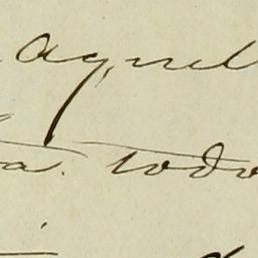 aquel
a. todo